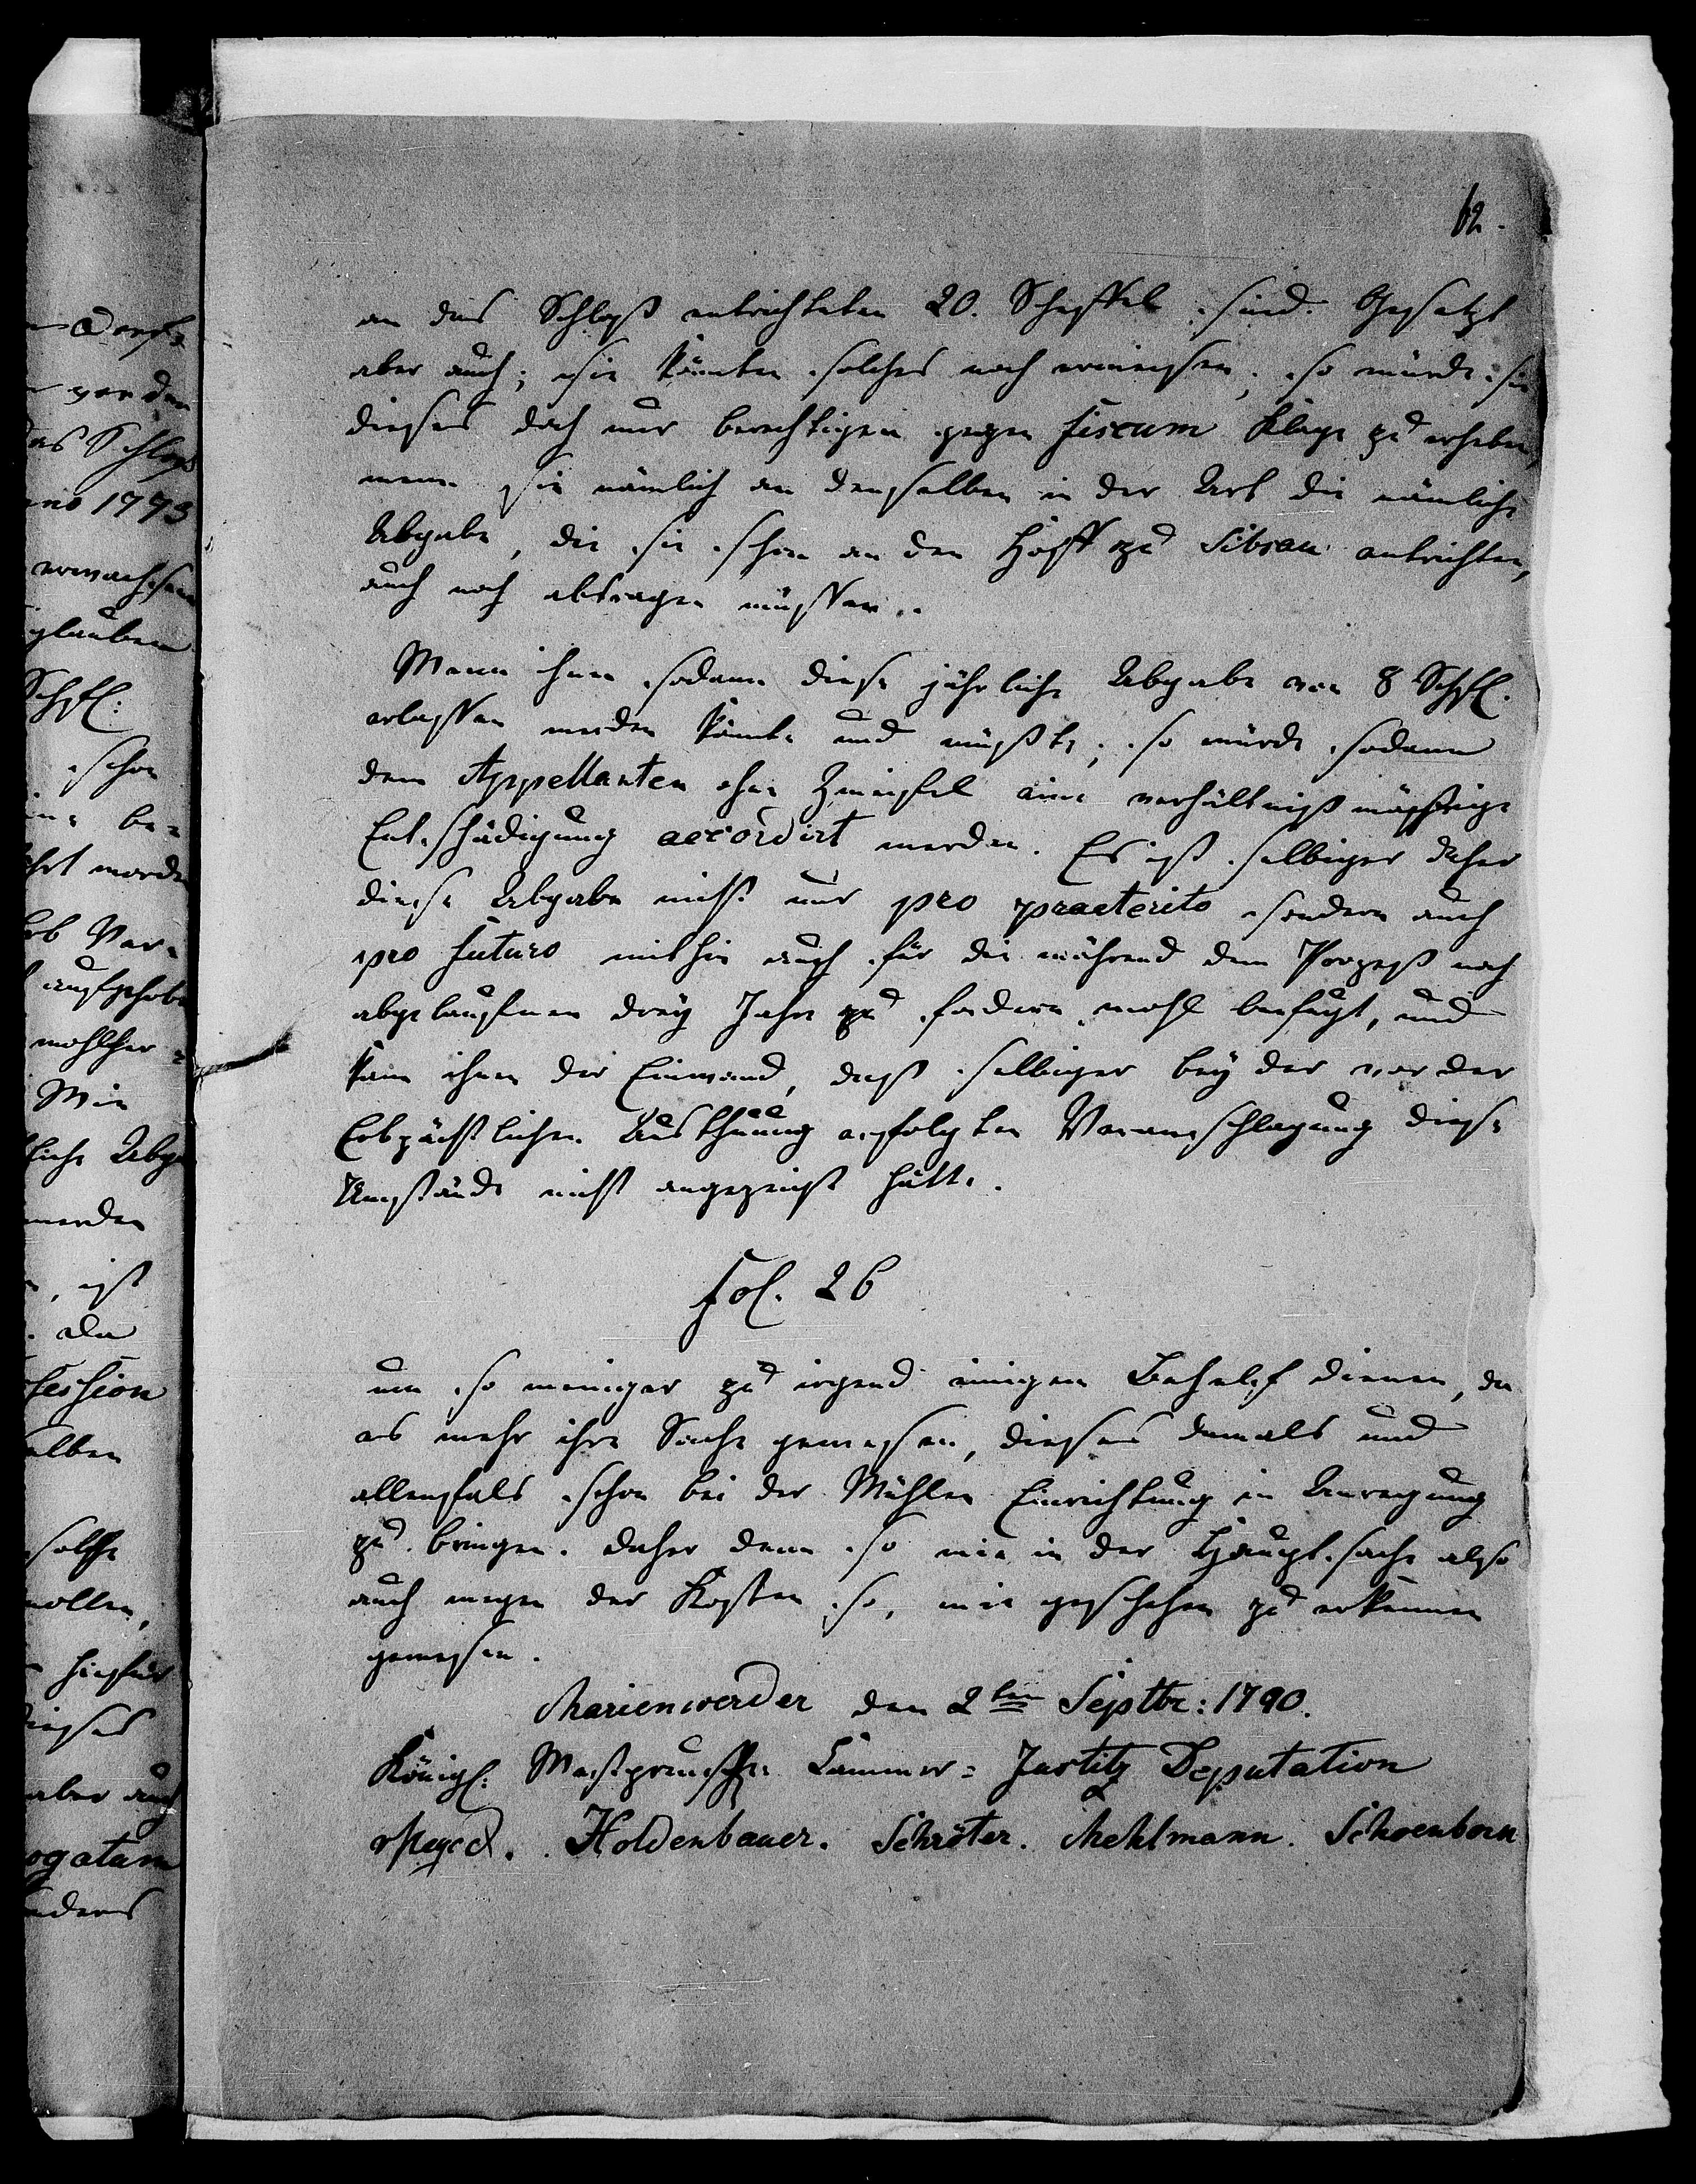 12.
an das Schloß entrichteten 20. Scheffel sind. Gesetzt
aber auch; sie könnten solches noch erweisen, so würde sie
dieses doch nur berechtigen gegen Fiscum Klage zu erheben,
wenn sie nämlich an denselben in der Art die nämliche
Abgabe, die sie schon an den Hoff zu Sibsau entrichten,
auch noch abtragen müssen.
Wenn ihnen sodann diese jährliche Abgabe von 8 Schfl.
erlassen werden könnte und müßte; so würde sodann
dem Appellanten ohne Zweifel eine verhältnißmäßige
Entschädigung accordirt werden. Es ist selbiger daher
diese Abgabe nicht nur pro praeterito sondern auch
pro futuro mithin auch für die während dem Prozeß noch
abgelaufenen drey Jahre zu fordern wohl befugt, und
kann ihnen der Einwand, daß selbiger bey der vor der
Erbpächtlichen Austhuung erfolgten Veranschlagung diese
Umstände nicht angezeigt hätte.
Fol. 26
um so weniger zu irgend einigen Behelf dienen, da
es mehr ihre Sache gewesen, dieses damals und
allenfals schon bei der Mühlen Einrichtung in Anregung
zu bringen. daher denn so wie in der Hauptsache also
auch wegen der Kosten so, wie geschehen zu erkennen
gewesen.
Marienwerder den 2ten Septbr: 1790.
Königl: Westpreusche Cammer= Justitz Deputation
Holdenbauer. Schröter. Mehlmann. Schoenborn